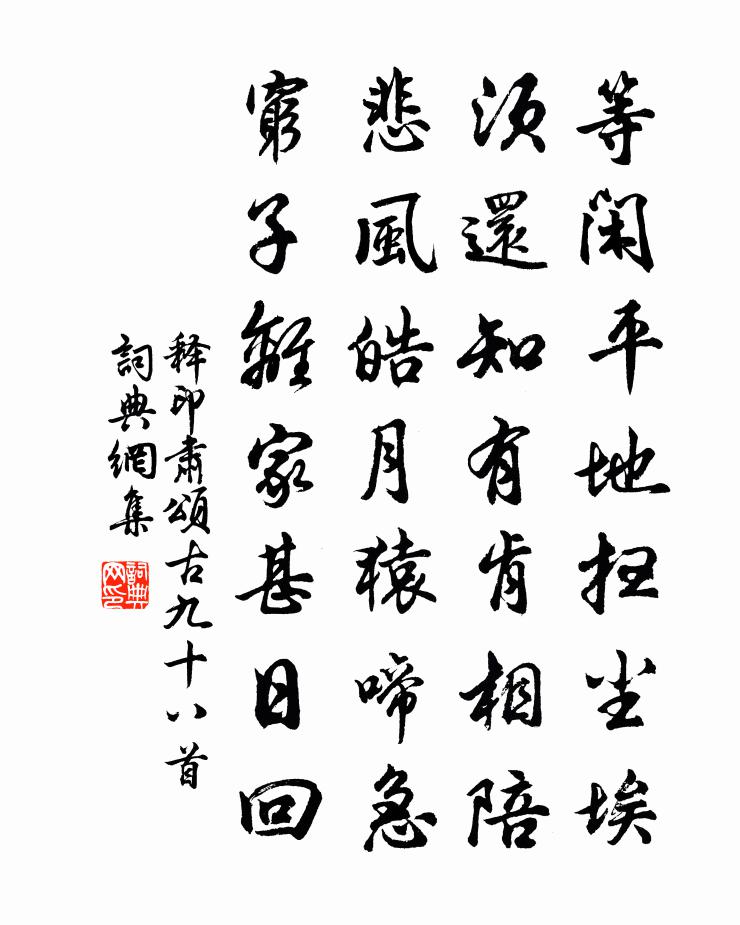 等閑平地扫尘埃
須還知有肯相陪
悲風皓月猿啼急
窮子離家甚日回
释印肃頌古九十八首
詞典網集
詞典网印